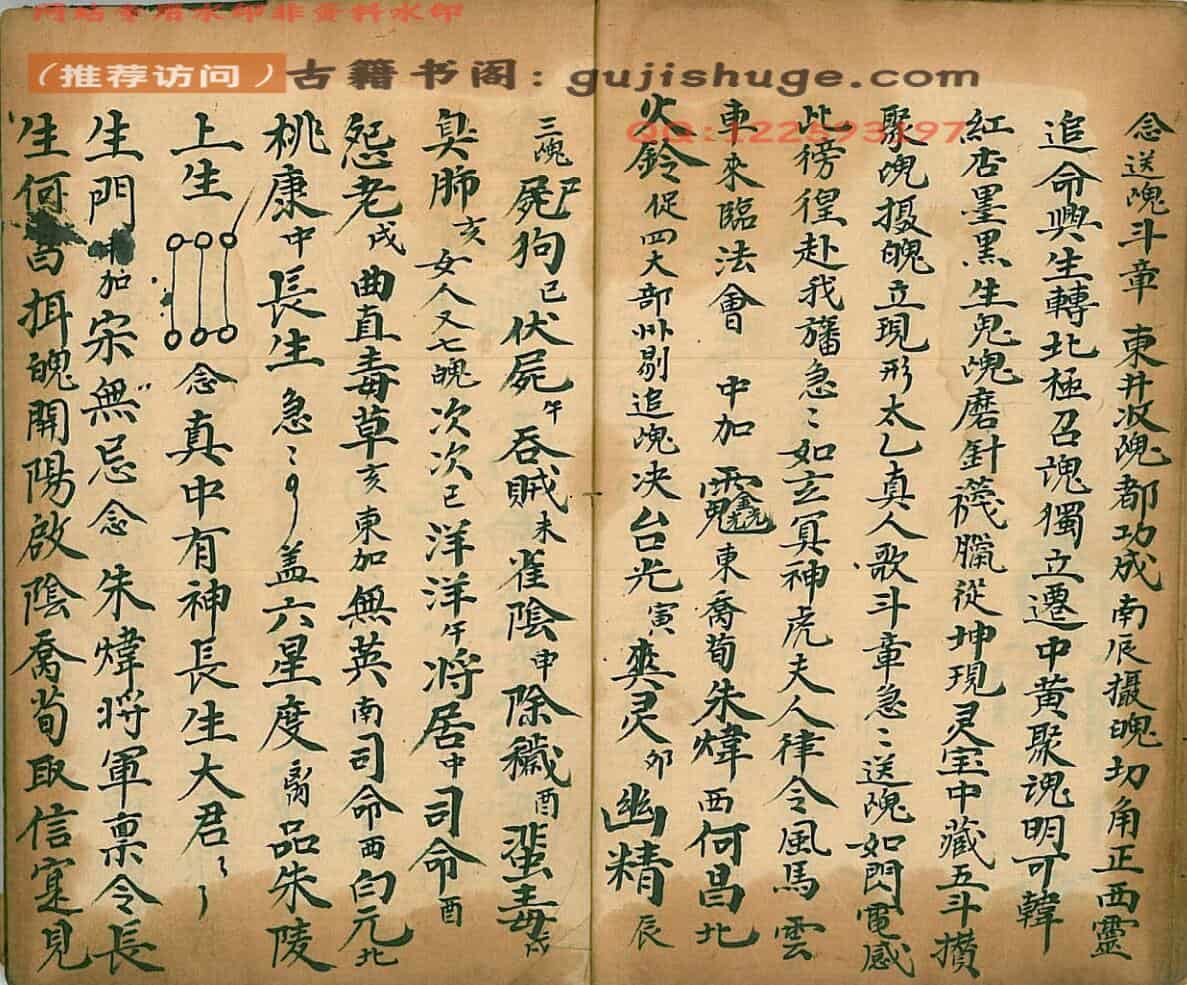 网站专用水印非资料水印
（推荐访问）古籍书阁：gujishuge.com
念送魂斗章 東井收魂都功成 南辰摄魄功角正西靈
追命興生轉北極召魂獨立遷中黃聚魂明可韓
紅店墨黑生鬼魂磨針襪臘從坤現灵宝中藏五斗攢
聚魂摄魄立現形太乙真人歌斗章急〻送魂如閃電感
此徬徨赴我旛急〻如玄冥神虎夫人律令風馬雲
車來臨法會 中加 東喬荀朱煒西何昌北
火鈴促四大部州剔追魂决台光寅爽灵卯幽精辰
三魂屍狗巳伏屍午吞贼未雀陰申除穢酉蜚毒戌
臭肺亥女人又七魄次次巳洋洋午将居中司命酉
怨老戌曲直毒草亥東加無英南司命西白元北
桃康中長生急〻盖六星度 品朱陵
上生 念真中有神長生大君〻
生門 加宋無忌念朱煒將軍禀令長
生何昌拘魄開陽啟陰喬荀取信寔見